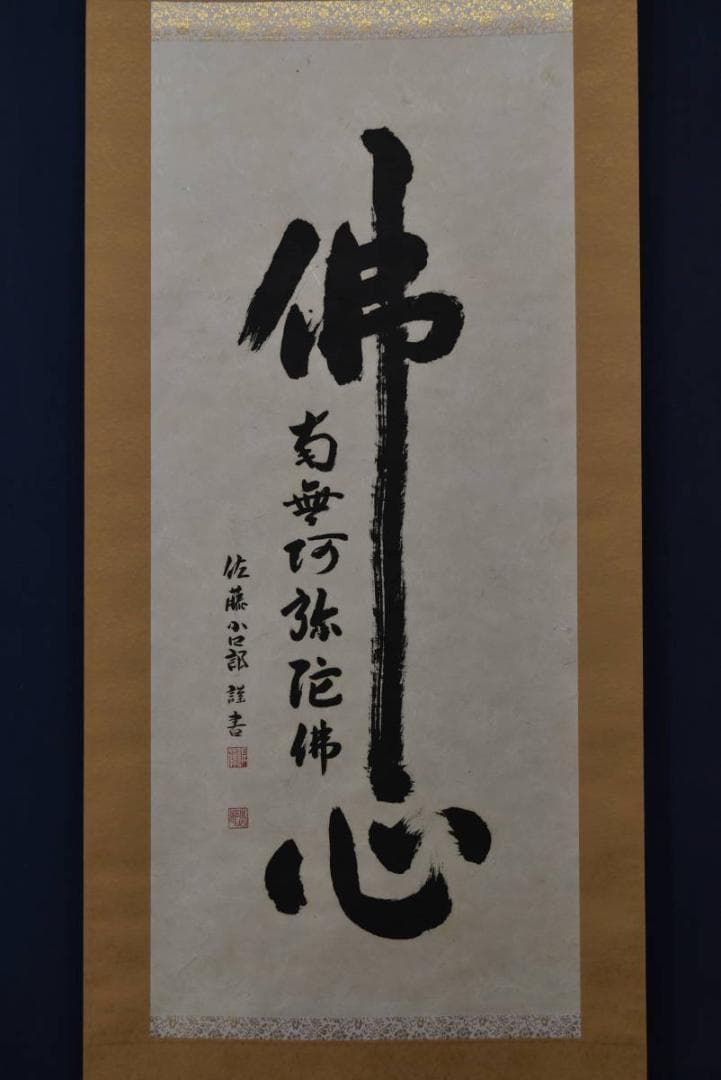 佛心
南無阿弥陀佛
佐藤小口郎 謹書